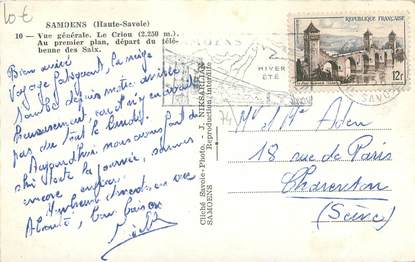 10€
SAMOENS (Haute-Savoie)
10 — Vue générale. Le Criou (2.250 m.)
Au premier plan, départ du télé-
benne des Saix.
Bien arrivé
Voyage fatiguant, la neige
tombe depuis notre arrivée
heureusement, car il n'y en avait
pas du tout le lundi.
Aujourd'hui nous avons fait du
ski toute la journée, sommes
encore
A bientôt, bon baiser
Cliché Savoie-Photo. - J. NIKSARLIAN
SAMOENS Reproduction interdite
SAMOENS
HIVER
ETE
REPUBLIQUE FRANÇAISE
12f
Mr et Mme Aden
18 rue de Paris
Charenton
(Seine)